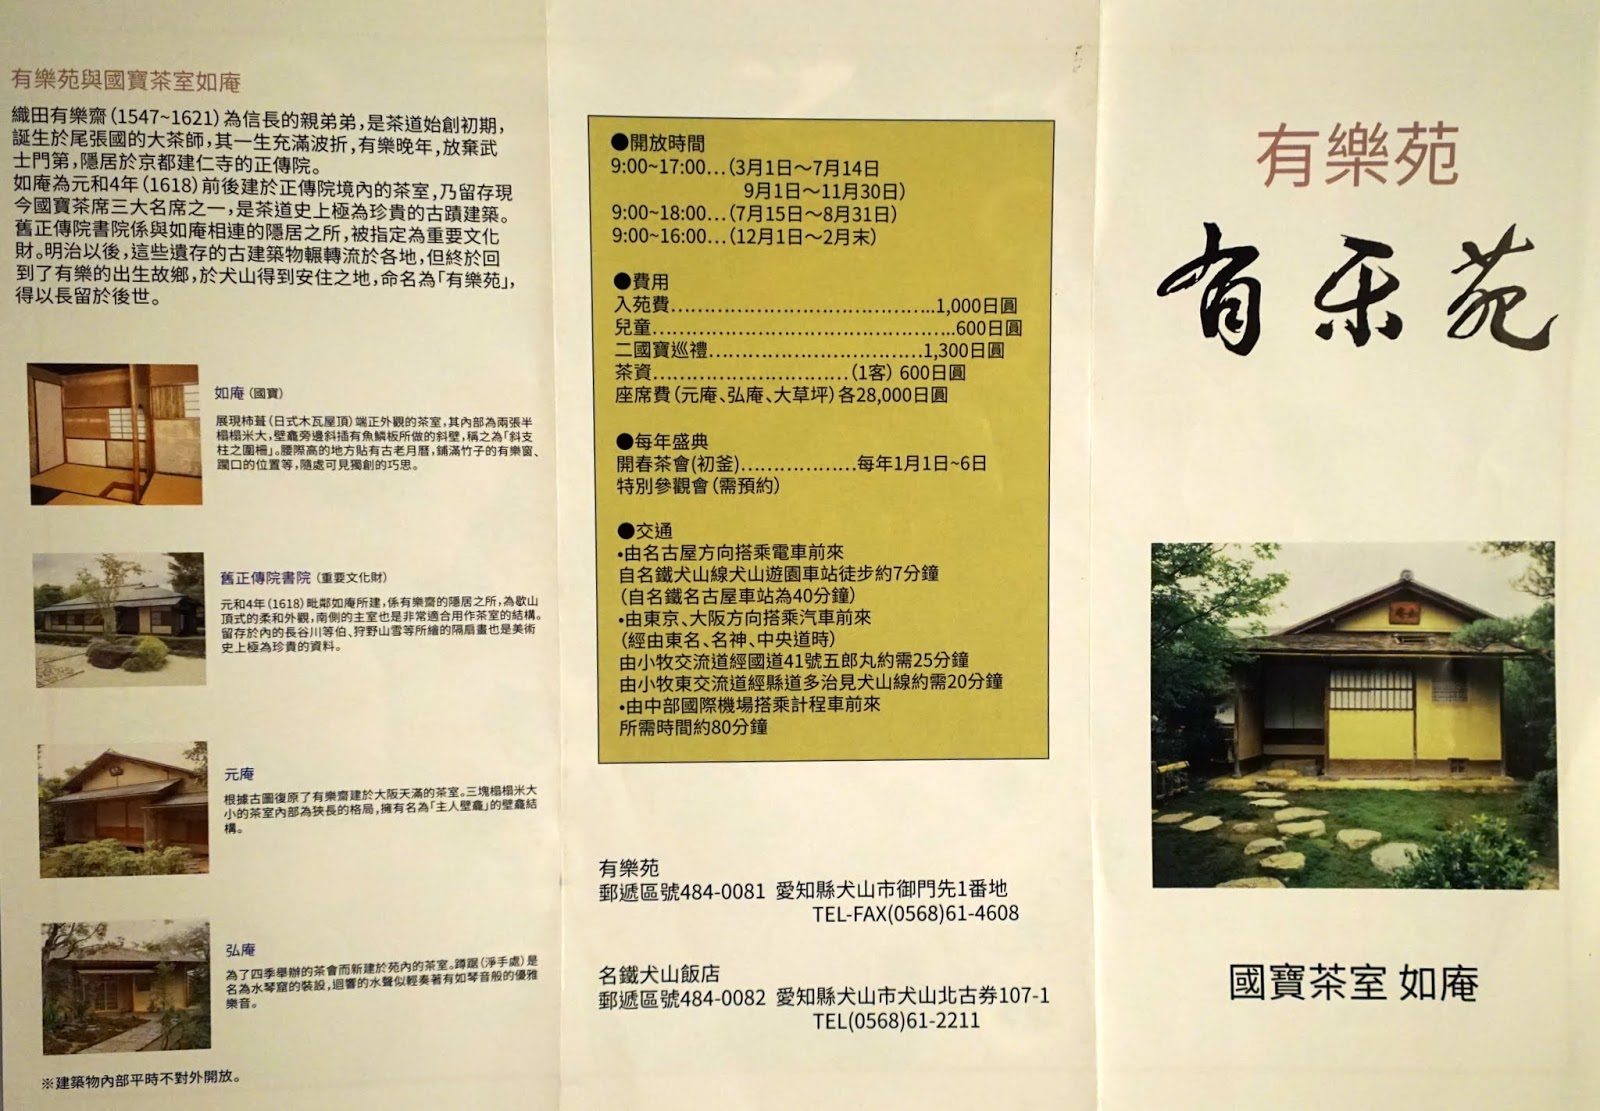 有樂苑與國寶茶室如庵
織田有樂齋(1547~1621)為信長的親弟弟,是茶道始創初期,
誕生於尾張國的大茶師,其一生充滿波折,有樂晚年,放棄武
士門第,隱居於京都建仁寺的正傳院。
如庵為元和4年(1618)前後建於正傳院境內的茶室,乃留存現
今國寶茶席三大名席之一,是茶道史上極為珍貴的古蹟建築。
舊正傳院書院係與如庵相連的隱居之所,被指定為重要文化
財。明治以後,這些遺存的古建築物輾轉流於各地,但終於回
到了有樂的出生故鄉,於犬山得到安住之地,命名為「有樂苑」,
得以長留於後世。
如庵(國寶)
展現杮葺(日式木瓦屋頂)端正外觀的茶室,其內部為兩張半
榻榻米大,壁龕旁邊斜插有魚鱗板所做的斜壁,稱之為「斜支
柱之圍柵」。腰際高的地方貼有古老月曆,鋪滿竹子的有樂窗、
躙口的位置等,隨處可見獨創的巧思。
舊正傳院書院(重要文化財)
元和4年(1618)毗鄰如庵所建,係有樂齋的隱居之所,為歇山
頂式的柔和外觀,南側的主室也是非常適合用作茶室的結構。
留存於內的長谷川等伯、狩野山雪等所繪的隔扇畫也是美術
史上極為珍貴的資料。
元庵
根據古圖復原了有樂齋建於大阪天滿的茶室。三塊榻榻米大
小的茶室內部為狹長的格局,擁有名為「主人壁龕」的壁龕結
構。
弘庵
為了四季舉辦的茶會而新建於苑內的茶室。蹲踞(淨手處)是
名為水琴窟的裝設,迴響的水聲似輕奏著有如琴音般的優雅
樂音。
※建築物內部平時不對外開放。
●開放時間
9:00~17:00…(3月1日～7月14日
9月1日～11月30日)
9:00~18:00…(7月15日～8月31日)
9:00~16:00…(12月1日～2月末)
●費用
入苑費…………………………………...1,000日圓
兒童………………………………………...600日圓
二國寶巡禮……………………………1,300日圓
茶資…………………………(1客) 600日圓
座席費(元庵、弘庵、大草坪)各28,000日圓
●每年盛典
開春茶會(初釜)………………每年1月1日~6日
特別參觀會(需預約)
●交通
•由名古屋方向搭乘電車前來
自名鐵犬山線犬山遊園車站徒步約7分鐘
(自名鐵名古屋車站為40分鐘)
•由東京、大阪方向搭乘汽車前來
(經由東名、名神、中央道時)
由小牧交流道經國道41號五郎丸約需25分鐘
由小牧東交流道經縣道多治見犬山線約需20分鐘
•由中部國際機場搭乘計程車前來
所需時間約80分鐘
有樂苑
郵遞區號484-0081 愛知縣犬山市御門先1番地
TEL-FAX(0568)61-4608
名鐵犬山飯店
郵遞區號484-0082 愛知縣犬山市犬山北古券107-1
TEL(0568)61-2211
有樂苑
有乐苑
國寶茶室 如庵